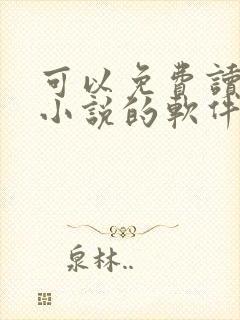 可以免費讀
小說的軟件
泉林..